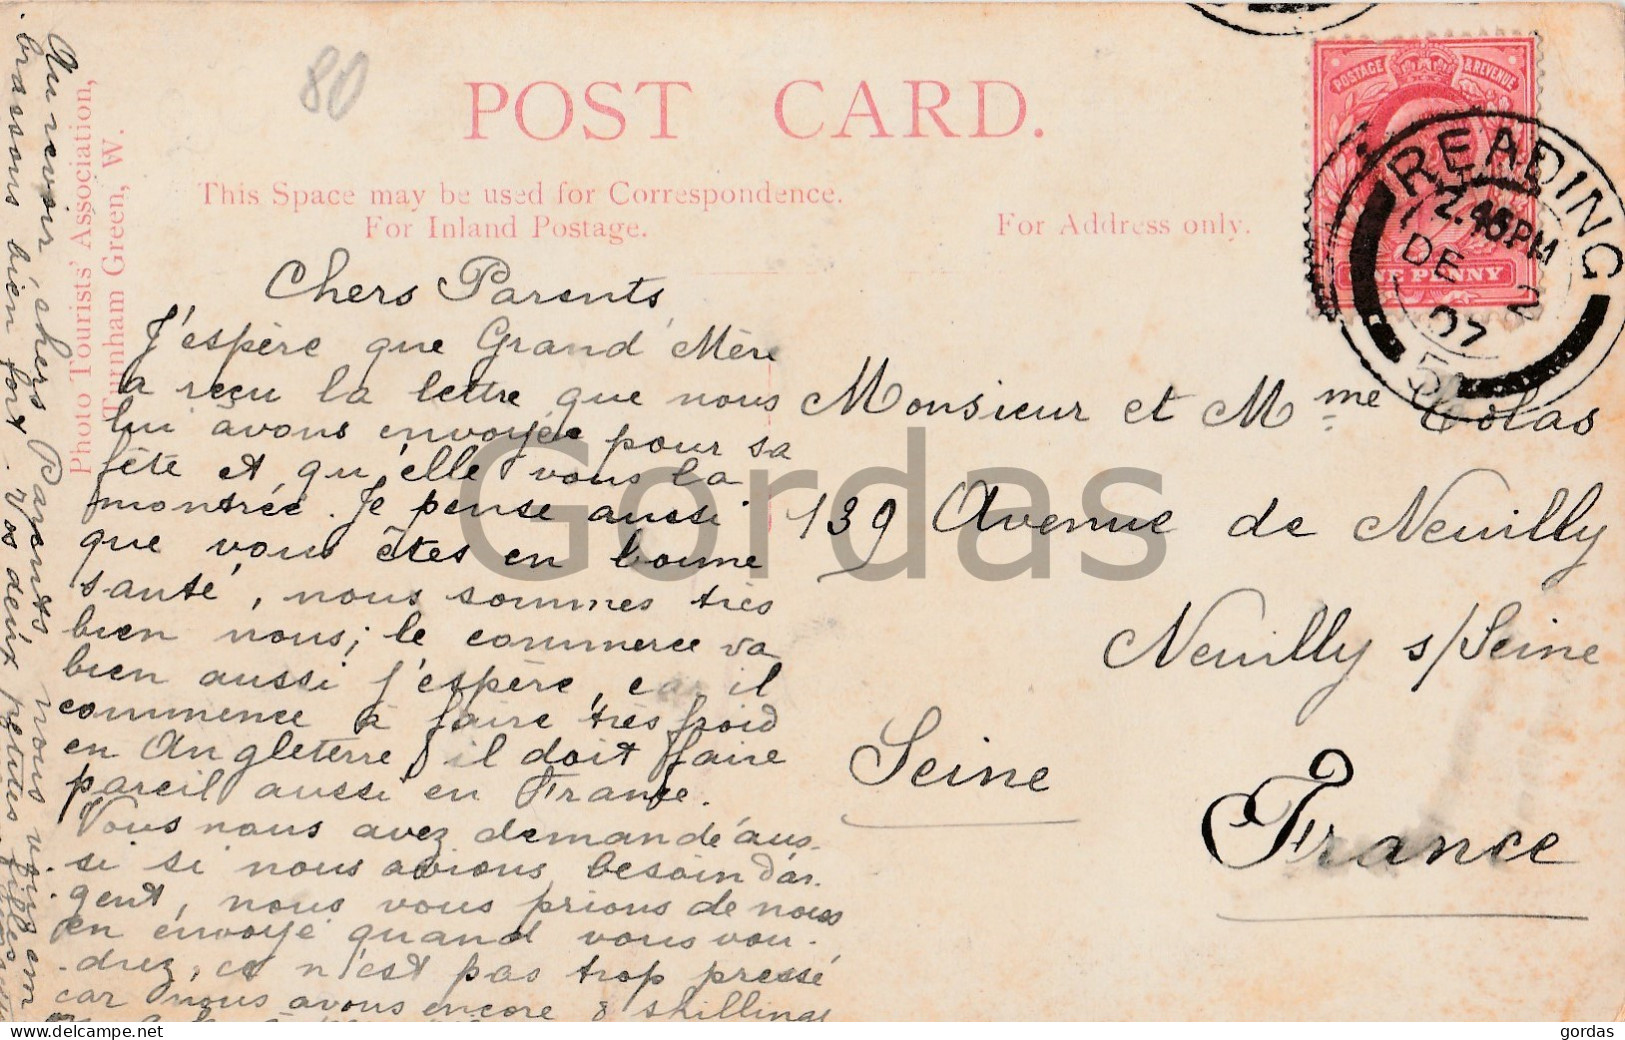 80
POST CARD.
This Space may be used for Correspondence.
For Inland Postage.
For Address only.
POSTAGE & REVENUE
ONE PENNY
READING
2.45PM
DE 2
07
Photo Tourists' Association,
Turnham Green, W.
Chers Parents
J'espère que Grand'Mère
a reçu la lettre que nous
lui avons envoyée pour sa
fête et qu'elle vous la
montrée. Je pense aussi
que vous êtes en bonne
santé, nous sommes très
bien nous; le commerce va
bien aussi j'espère, car il
commence à faire très froid
en Angleterre il doit faire
pareil aussi en France.
Vous nous avez demandé aus-
si si nous avions besoin d'ar-
gent, nous vous prions de nous
en envoyé quand vous vou-
drez, ce n'est pas trop pressé
car nous avons encore 8 shillings
Au revoir, chers Parents nous vous em
brassons bien fort. Vos deux petites filles
Monsieur et Mme Colas
139 Avenue de Neuilly
Neuilly s/Seine
Seine
France
Gordas
gordas